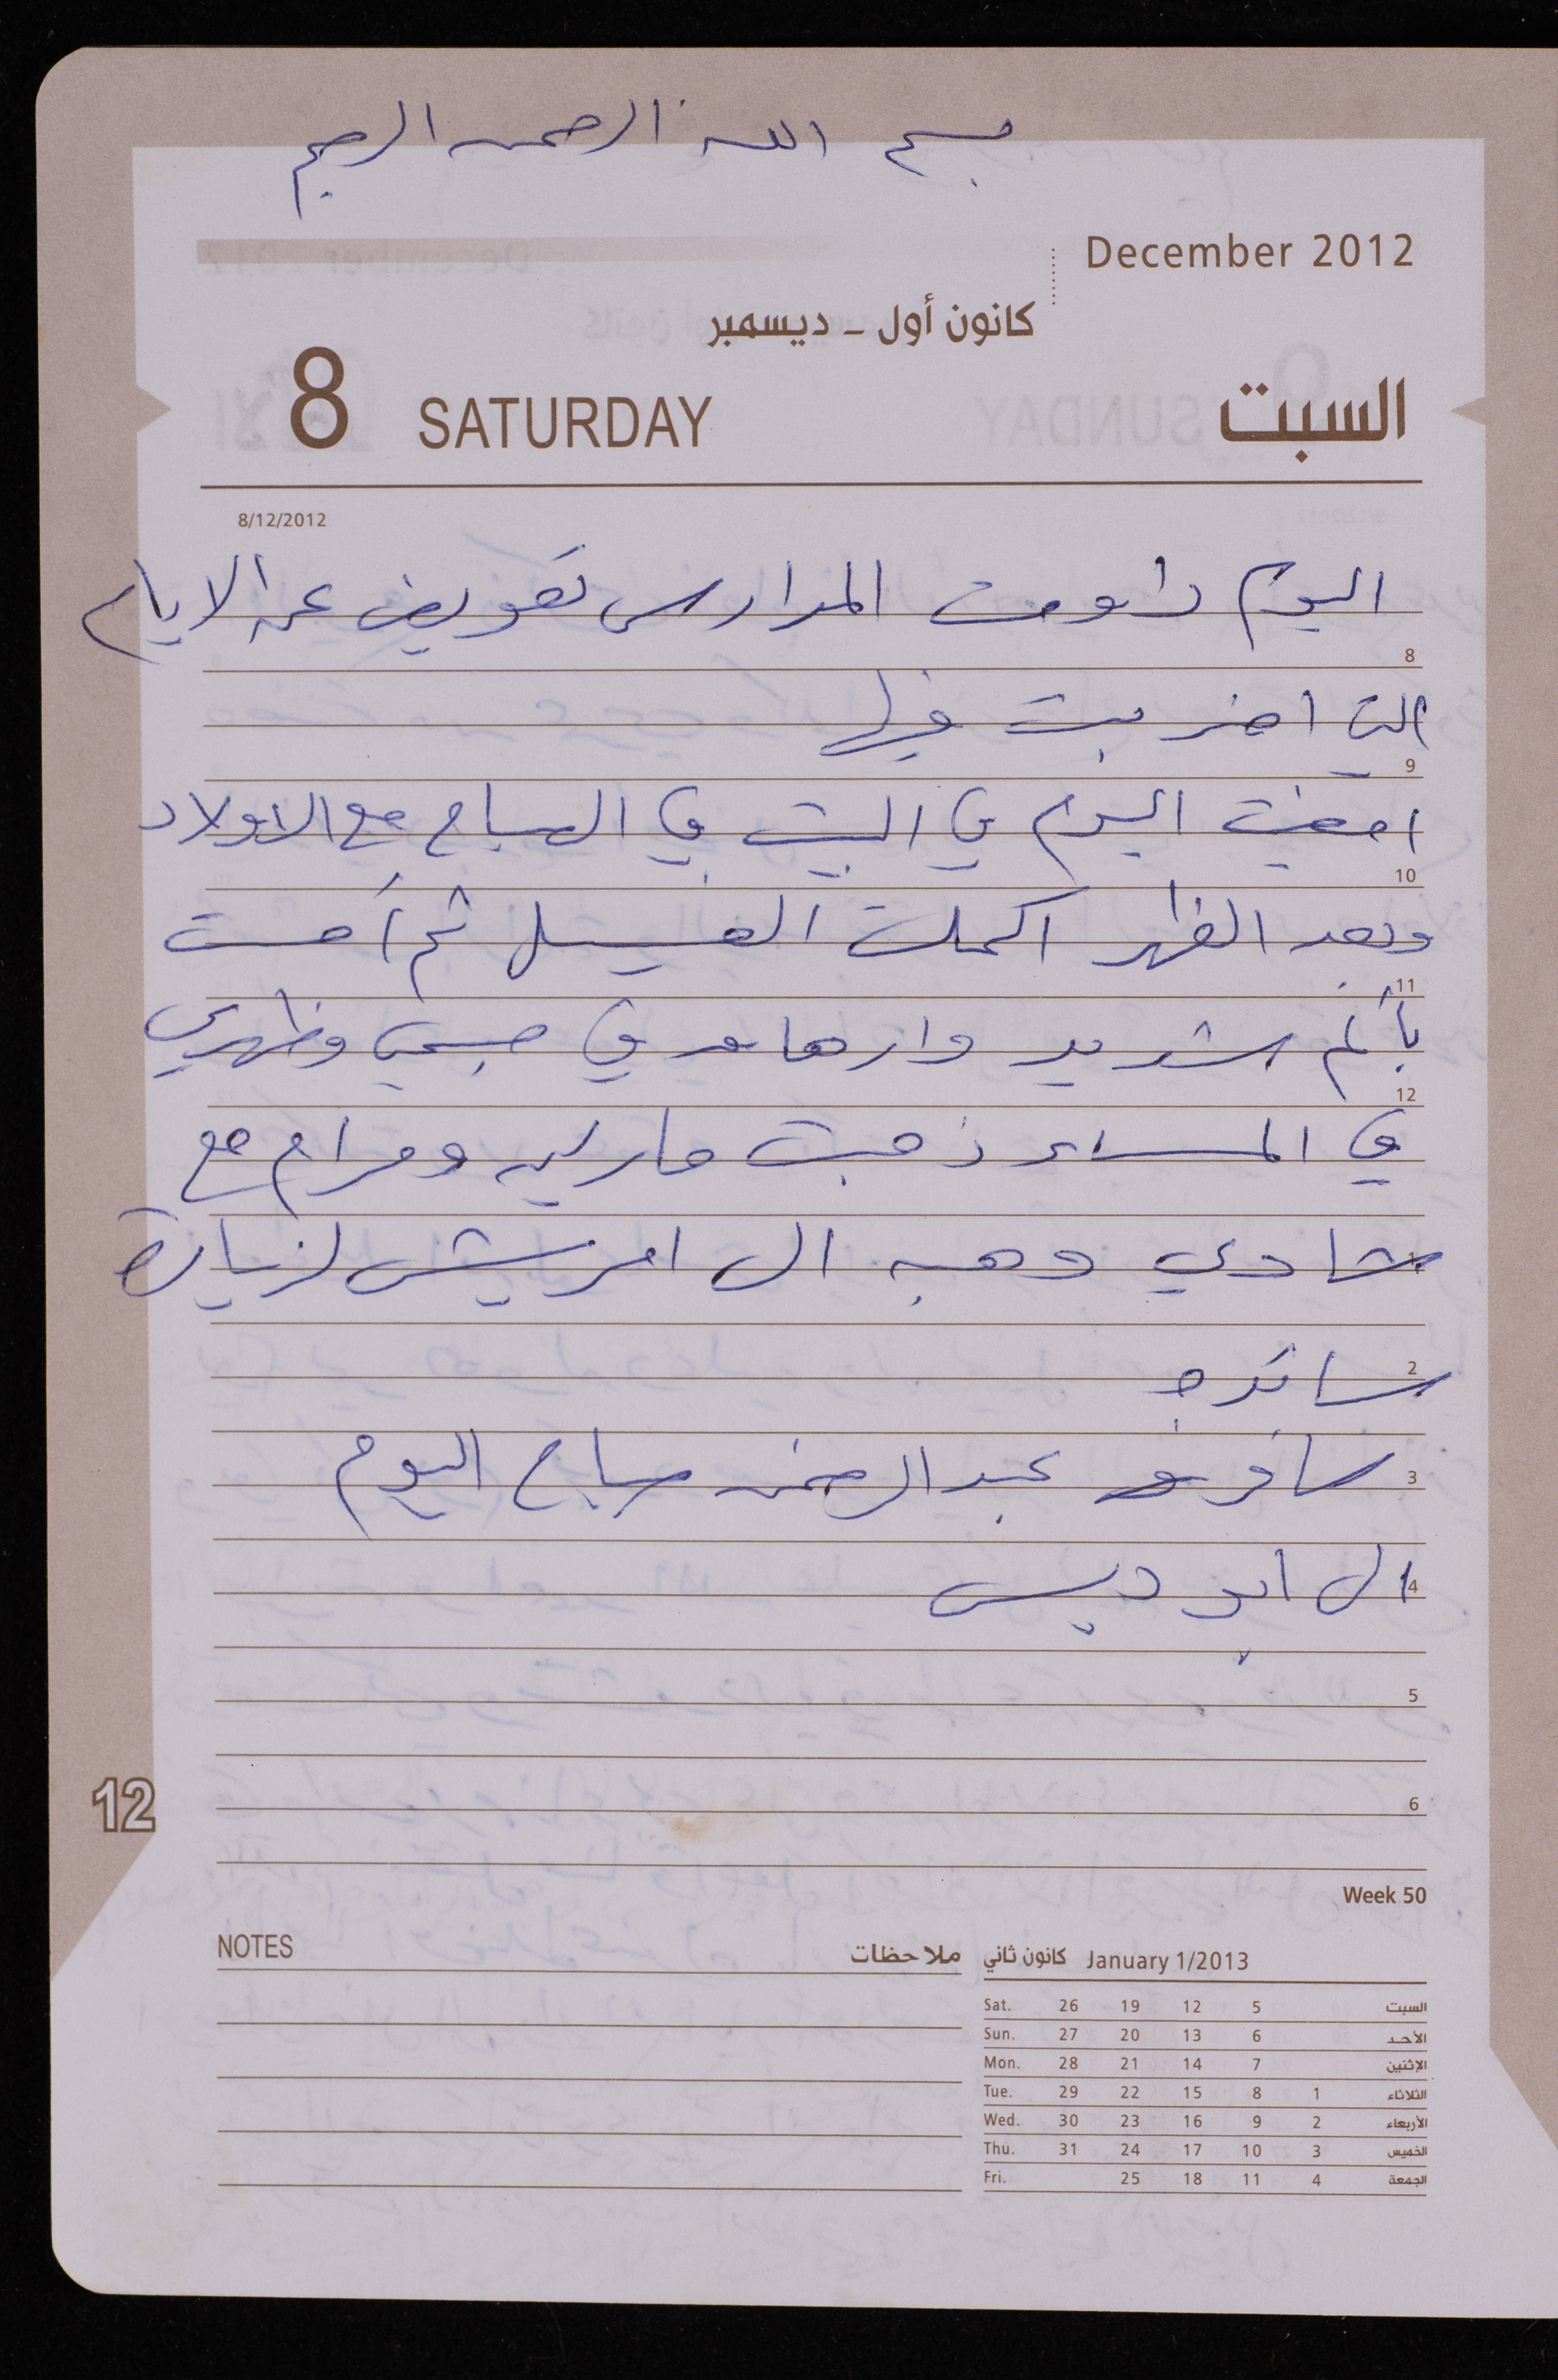 بسم الله الرحمن الرحيم
December 2012
كانون أول - ديسمبر
8 SATURDAY السبت
8/12/2012
اليوم داومت المدارس تعويض عن الايام
8
التي اضربت فيها
9
امضيت اليوم في البيت في الصباح مع الاولاد
10
وبعد الظهر اكملت الغسيل ثم أحست
11
بألم شديد وارهاق في جسمي وظهري
12
في المساء ذهبت مارلين ومرام مع
شادي وهبه الى امريش لزيارة
1
ساجدة
2
سافر عبد الرحمن صباح اليوم
3
الى ابو ديس
4
5
6
12
Week 50
NOTES ملاحظات
January 1/2013 كانون ثاني
Sat. 26 19 12 5 السبت
Sun. 27 20 13 6 الأحد
Mon. 28 21 14 7 الإثنين
Tue. 29 22 15 8 1 الثلاثاء
Wed. 30 23 16 9 2 الأربعاء
Thu. 31 24 17 10 3 الخميس
Fri. 25 18 11 4 الجمعة